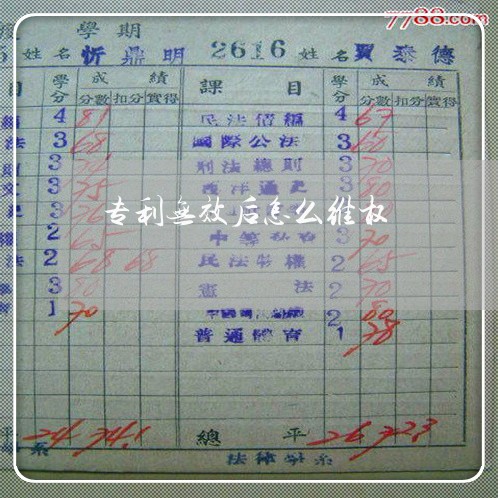 7788.com
學期
姓名 忻鼎明 2616 姓名 賈泰德
目 學分 成績 課目 學分 成績
分數 扣分 實得 分數 扣分 實得
4 81 民法債編 4 67
法 3 68 國際公法 3 60
3 刑法總則 3 70
3 75 西洋通史 3 80
3 76 3
專利無效后怎么維權
2 65 3 70
法 2 68 68 民法物權 2 65
3 80 憲法 2 70
1 70 2 80
普通體育 1 78
平 24 74.1 總平 26 72.3
系 法律學系